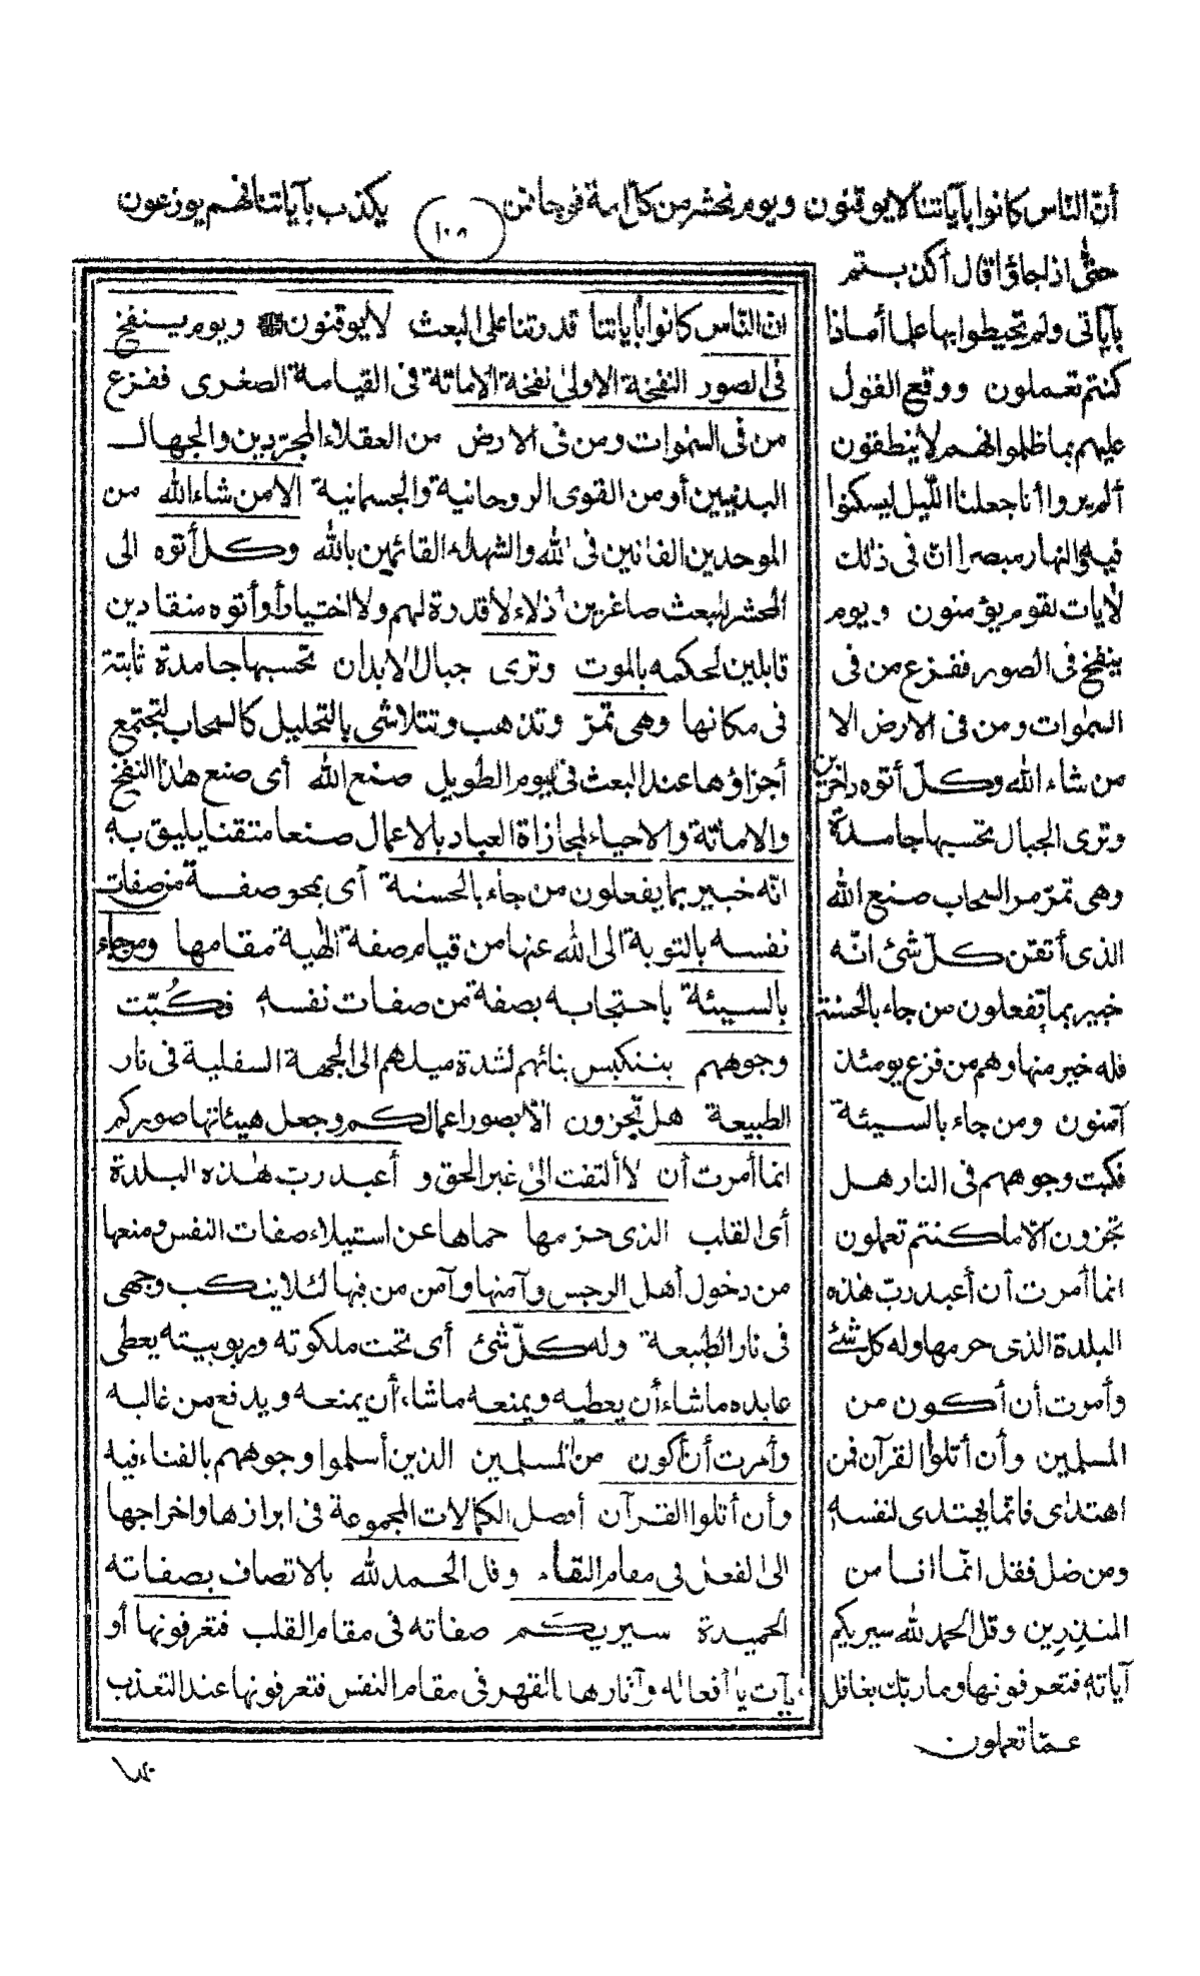 أنّ الناس كانوا بآياتنا لا يوقنون ويوم نحشر من كلّ أمة فوجا ممن يكذب بآياتنا فهم يوزعون
١٠٨
حتى اذا جاؤا قال أكذبتم
بآياتى ولم تحيطوا بها علما أماذا
كنتم تعملون ووقع القول
عليهم بما ظلموا فهم لا ينطقون
ألم يروا أنا جعلنا الليل ليسكنوا
فيه والنهار مبصرا انّ فى ذلك
لآيات لقوم يؤمنون ويوم
ينفخ فى الصور ففزع من فى
السموات ومن فى الارض الا
من شاء الله وكلّ أتوه داخرين
وترى الجبال تحسبها جامدة
وهى تمرّ مر السحاب صنع الله
الذى أتقن كلّ شئ انّه
خبير بما تفعلون من جاء بالحسنة
فله خير منها وهم من فزع يومئذ
آمنون ومن جاء بالسيئة
فكبت وجوههم فى النار هل
تجزون الّا ما كنتم تعملون
انما أمرت أن أعبد ربّ هذه
البلدة الذى حرمها وله كل شئ
وأمرت أن أكون من
المسلمين وأن أتلوا القرآن فمن
اهتدى فانّما يهتدى لنفسه
ومن ضل فقل انّما انا من
المنذرين وقل الحمد لله سيريكم
آياته فتعرفونها وما ربّك بغافل
عمّا تعملون
انّ الناس كانوا بآياتنا قدرتنا على البعث لا يوقنون ويوم ينفخ
فى الصور النفخة الاولى نفخة الاماتة فى القيامة الصغرى ففزع
من فى السموات ومن فى الارض من العقلاء المجرّدين والجهال
البدنيين أو من القوى الروحانية والجسمانية الا من شاء الله من
الموحدين الفانين فى الله والشهداء القائمين بالله وكل أتوه الى
المحشر للبعث صاغرين أذلاء لا قدرة لهم ولا اختيار أو أتوه منقادين
قابلين لحكمه بالموت وترى جبال الابدان تحسبها جامدة ثابتة
فى مكانها وهى تمرّ وتذهب وتتلاشى بالتحليل كالسحاب لتجتمع
أجزاؤها عند البعث فى اليوم الطويل صنع الله أى صنع هذا النفخ
والاماتة والاحياء لمجازاة العباد بالاعمال صنعا متقنا يليق به
انّه خبير بما يفعلون من جاء بالحسنة أى بمحو صفة من صفات
نفسه بالتوبة الى الله عنها من قيام صفة الهية مقامها ومن جاء
بالسيئة باحتجابه بصفة من صفات نفسه فكُبّت
وجوههم بتنكيس بنائهم لشدة ميلهم الى الجهة السفلية فى نار
الطبيعة هل تجزون الّا بصور اعمالكم وجعل هيئاتها صوركم
انما أمرت أن لا ألتفت الى غير الحق و أعبد ربّ هذه البلدة
أى القلب الذى حرمها حماها عن استيلاء صفات النفس ومنعها
من دخول أهل الرجس وآمنها وآمن من فيها لئلا ينكب وجهى
فى نار الطبيعة وله كلّ شئ أى تحت ملكوته وربوبيته يعطى
عابده ما شاء أن يعطيه ويمنعه ما شاء أن يمنعه ويدفع من غالبه
وأمرت أن أكون من المسلمين الذين أسلموا وجوههم بالفناء فيه
وأن أتلوا القرآن أفصل الكمالات المجموعة فى ابرازها واخراجها
الى الفعل فى مقام البقاء وقل الحمد لله بالاتصاف بصفاته
الحميدة سيريكم صفاته فى مقام القلب فتعرفونها أو
آيات أفعاله وآثارها بالقهر فى مقام النفس فتعرفونها عند التعذب